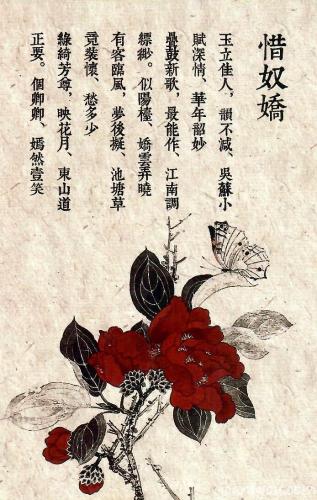 惜奴嬌
玉立佳人，韻不減、吳蘇小
賦深情、華年韶妙
疊鼓新歌，最能作、江南調
縹緲。似陽檯、嬌雲弄曉
有客臨風，夢後擬、池塘草
竟裝懷、愁多少
綠綺芳尊，映花月、東山道
正要。個卿卿、嫣然壹笑